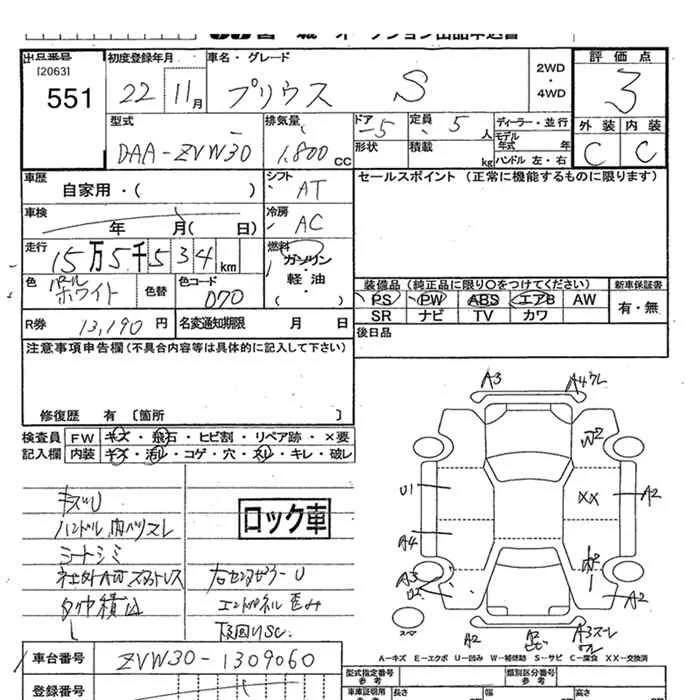 出品番号 [2063] 551
初度登録年月 22 11月
車名・グレード プリウス S
2WD・4WD
評価点 3
外装 C 内装 C
型式 DAA-ZVW30
排気量 1,800 CC
ドア 5 形状
定員 5人 積載 kg
ディーラー・並行
モデル年式 年
ハンドル 左・右
車歴 自家用・( )
シフト AT
セールスポイント (正常に機能するものに限ります)
車検 年 月( 日)
冷房 AC
走行 15万5千534km
燃料 ガソリン・軽油・( )
色 パールホワイト 色替 色コード 070
装備品 (純正品に限り○をつけてください) 新車保証書
PS PW ABS エアB AW 有・無
SR ナビ TV カワ
R券 13,190円 名変通知期限 月 日
後日品
注意事項申告欄 (不具合内容等は具体的に記入して下さい)
修復歴 有 〔箇所 〕
検査員記入欄 FW キズ・飛石・ヒビ割・リペア跡・×要
内装 キズ・汚レ・コゲ・穴・スレ・キレ・破レ
キズU
シートシミ
ロック車
エンドパネル歪み
下回りSC.
A3 A4ワレ
W2
U1 XX A2
A4
A3
A2
A2 A2
A-キズ E-エクボ U-凹み W-補修跡 S-サビ C-腐食 XX-交換済
車台番号 ZVW30-1309060
登録番号
型式指定番号 参考 類別区分番号 参考
車庫証明用 長さ 幅 高さ